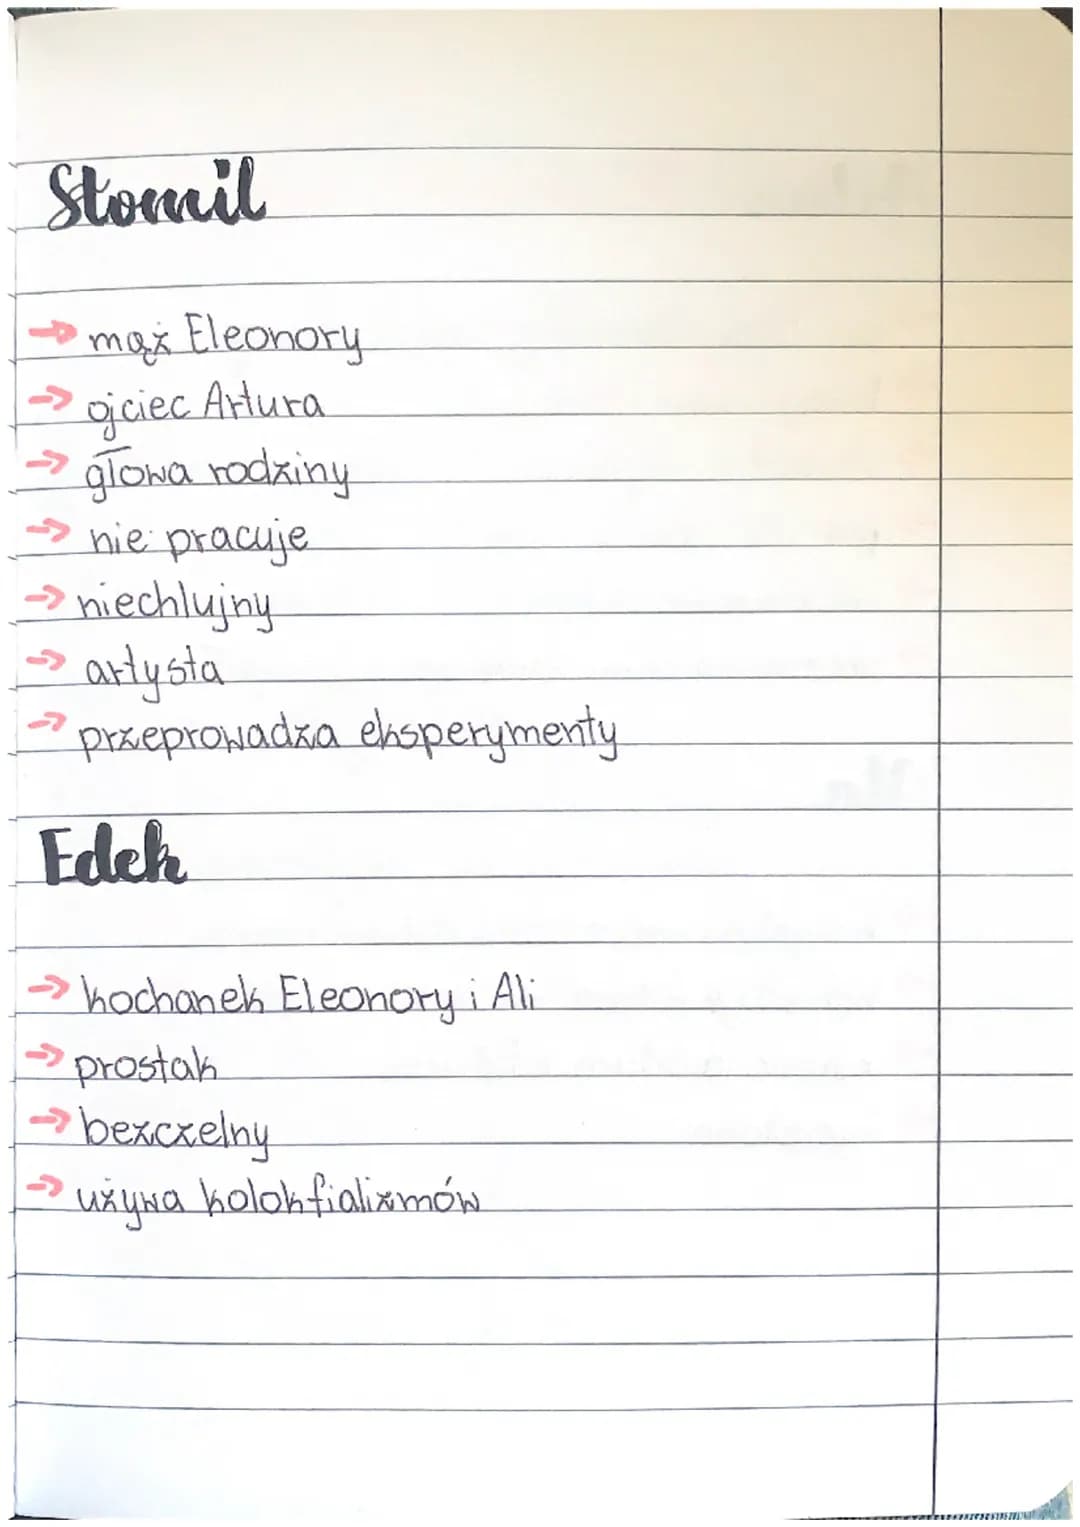 Stomil
→ mąż Eleonory
→ ojciec Artura
→ głowa rodziny
→ nie pracuje
→ niechlujny
→ artysta
→ przeprowadza eksperymenty
Edek
→ kochanek Eleonory i Ali
→ prostak
→ bezczelny
→ używa kolokfializmów